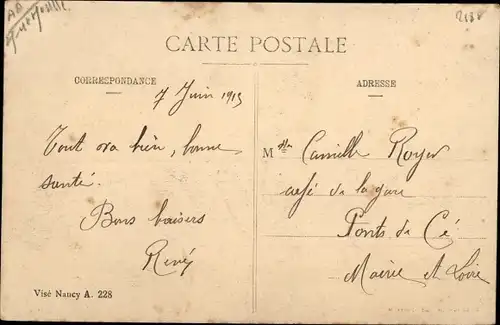 CARTE POSTALE
CORRESPONDANCE
ADRESSE
7 Juin 1913
Tout va bien, bonne
santé.
Bons baisers
René
Mlle Camille Royer
café de la gare
Ponts de Cé
Maine et Loire
Visé Nancy A. 228